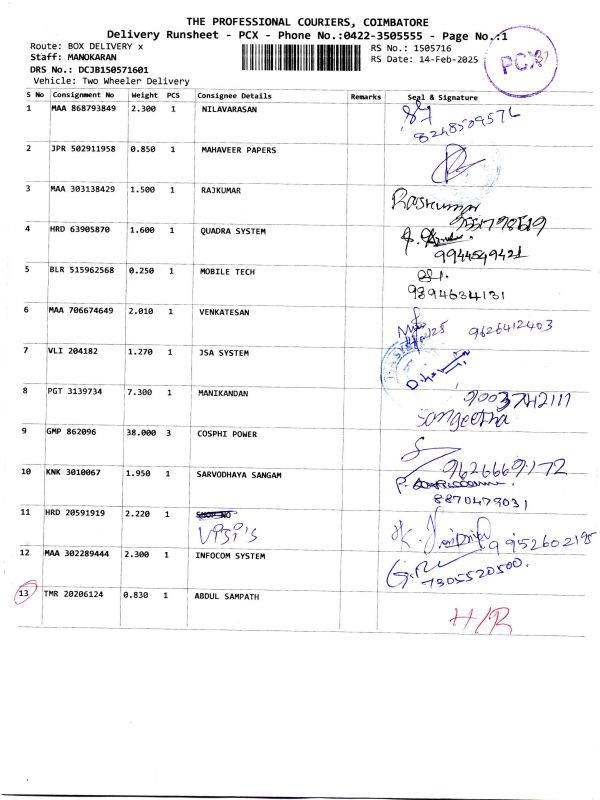 THE PROFESSIONAL COURIERS, COIMBATORE
Delivery Runsheet - PCX - Phone No.:0422-3505555 - Page No.:1
Route: BOX DELIVERY x
RS No.: 1505716
Staff: MANOKARAN
RS Date: 14-Feb-2025
PCX
DRS No.: DCJB150571601
Vehicle: Two Wheeler Delivery
S No Consignment No Weight PCS Consignee Details Remarks Seal & Signature
1 MAA 868793849 2.300 1 NILAVARASAN
8248509576
2 JPR 502911958 0.850 1 MAHAVEER PAPERS
3 MAA 303138429 1.500 1 RAJKUMAR Rajkumar
4 HRD 63905870 1.600 1 QUADRA SYSTEM
9944549421
5 BLR 515962568 0.250 1 MOBILE TECH
9894634131
6 MAA 706674649 2.010 1 VENKATESAN
9626412403
7 VLI 204182 1.270 1 JSA SYSTEM
8 PGT 3139734 7.300 1 MANIKANDAN 9003742111
Sangeetha
9 GMP 862096 38.000 3 COSPHI POWER
9626669172
10 KNK 3010067 1.950 1 SARVODHAYA SANGAM
8870479031
11 HRD 20591919 2.220 1 SHOP NO
9952602195
12 MAA 302289444 2.300 1 INFOCOM SYSTEM
7305520500.
13 TMR 20206124 0.830 1 ABDUL SAMPATH
H/R